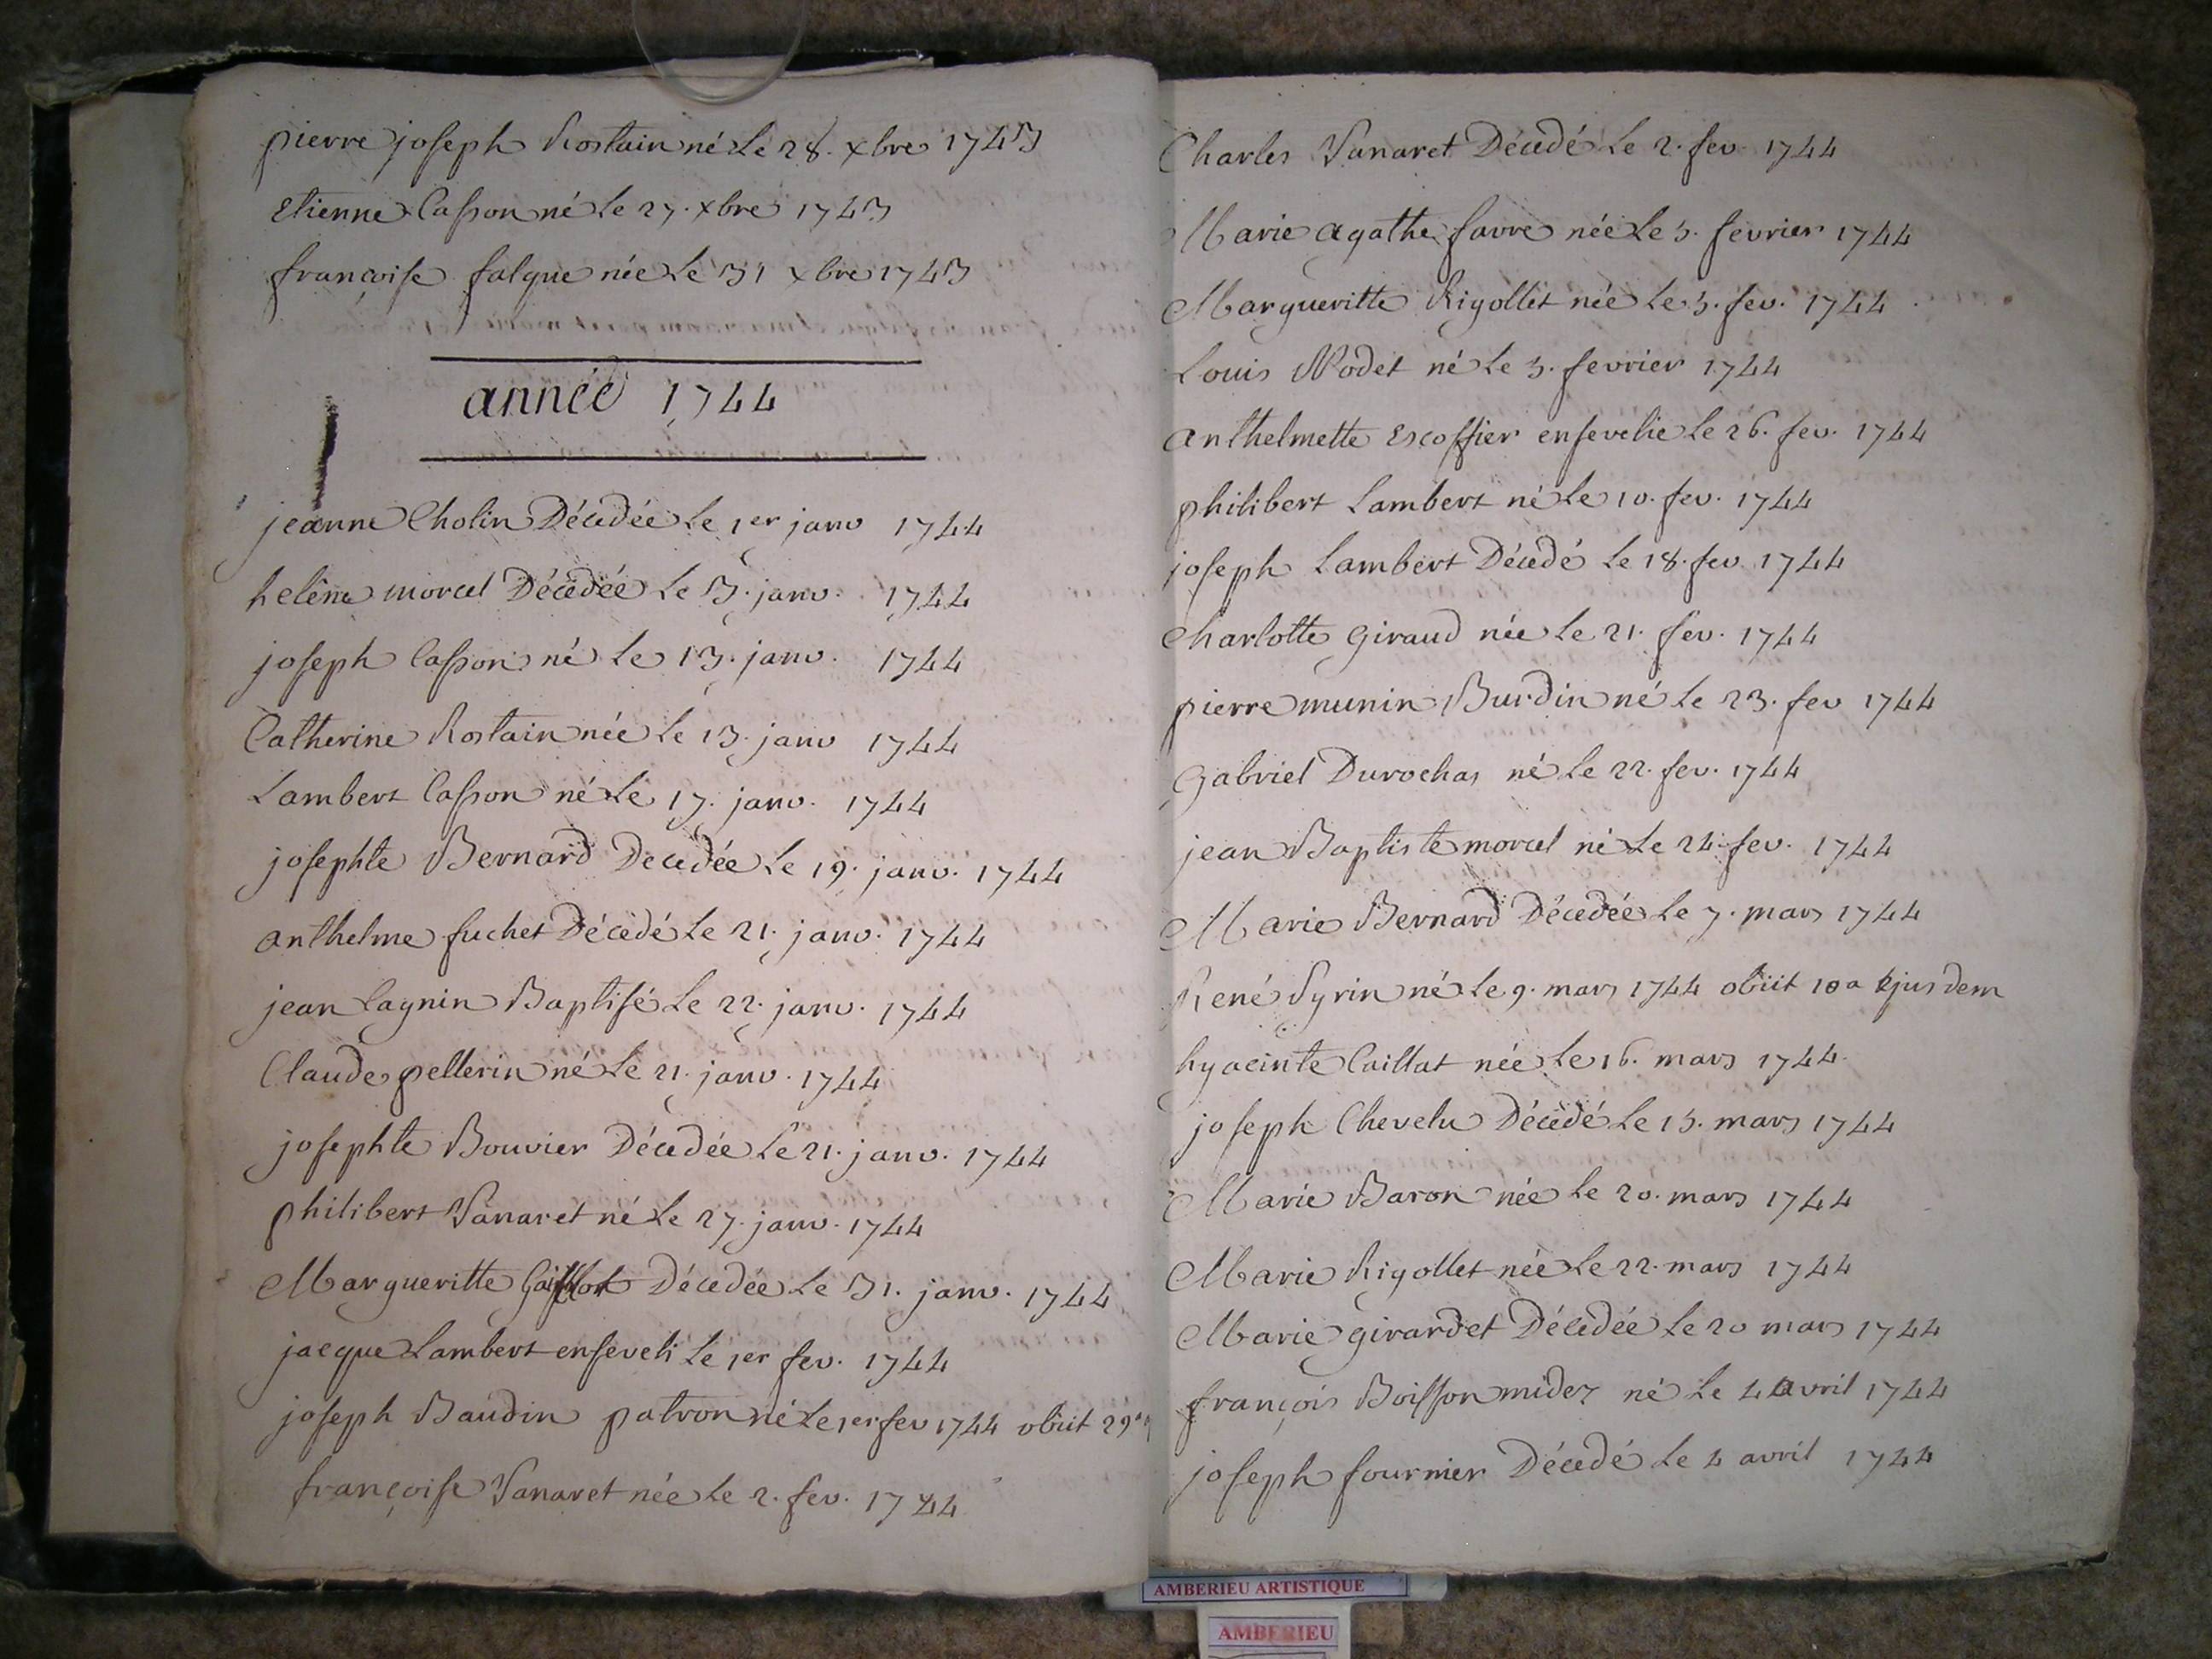 pierre joseph Rostain né Le 28. xbre 1743
Etienne Casson né Le 27. xbre 1743
françoise falque née Le 31 xbre 1743
année 1744
jeanne Cholin Décédée Le 1er janv 1744
helêne morcel Décédée Le 3. janv. 1744
joseph Casson né Le 13. janv. 1744
Catherine Rostain née Le 13. janv 1744
Lambert Casson né Le 17. janv. 1744
josephte Bernard Decedée Le 19. janv. 1744
anthelme fuchet Décédé Le 21. janv. 1744
jean Cagnin Baptisé Le 22. janv. 1744
Claude pellerin né Le 21. janv. 1744
josephte Bouvier Décedée Le 21. janv. 1744
philibert Vanaret né Le 27. janv. 1744
Margueritte Décedée Le 31. janv. 1744
jacque Lambert enseveli Le 1er fev. 1744
joseph Baudin patron né Le 1er fev 1744 obiit 29a
françoise Vanaret née Le 2. fev. 1744
Charles Vanaret Décedé Le 2. fev 1744
Marie agathe favre née Le 5. fevrier 1744
Margueritte Rigollet née Le 5. fev. 1744
Louis Nodet né Le 5. fevrier 1744
anthelmette Escoffier ensevelie Le 26. fev. 1744
philibert Lambert né Le 10. fev. 1744
joseph Lambert Décedé Le 18. fev 1744
Charlotte Giraud née Le 21. fev. 1744
pierre munin Burdin né Le 23. fev 1744
Gabriel Durochas né Le 22. fev. 1744
jean Baptiste morcel né Le 24. fev. 1744
Marie Bernard Décedée Le 7. mars 1744
René Syrin né Le 9. mars 1744 obiit 10a Ejusdem
hyacinte Caillat née Le 16. mars 1744
joseph Chevelu Décédé Le 15. mars 1744
Marie Baron née Le 20. mars 1744
Marie Rigollet née Le 22. mars 1744
Marie girardet Décedée Le 20 mars 1744
françois Boisson midez né Le 4 avril 1744
joseph fournier Décedé Le 4 avril 1744
AMBERIEU ARTISTIQUE
AMBERIEU